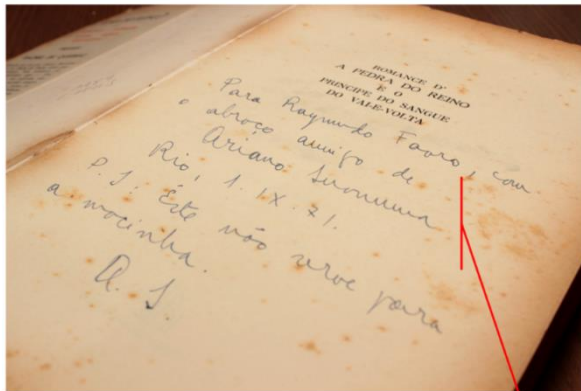 ROMANCE D'
A PEDRA DO REINO
E O
PRÍNCIPE DO SANGUE
DO VAI-E-VOLTA
Para Raymundo Faoro, com
o abraço amigo de
Ariano Suassuna
Rio, 1. IX. 71.
P. S. Este não serve para
a mocinha.
A. S.